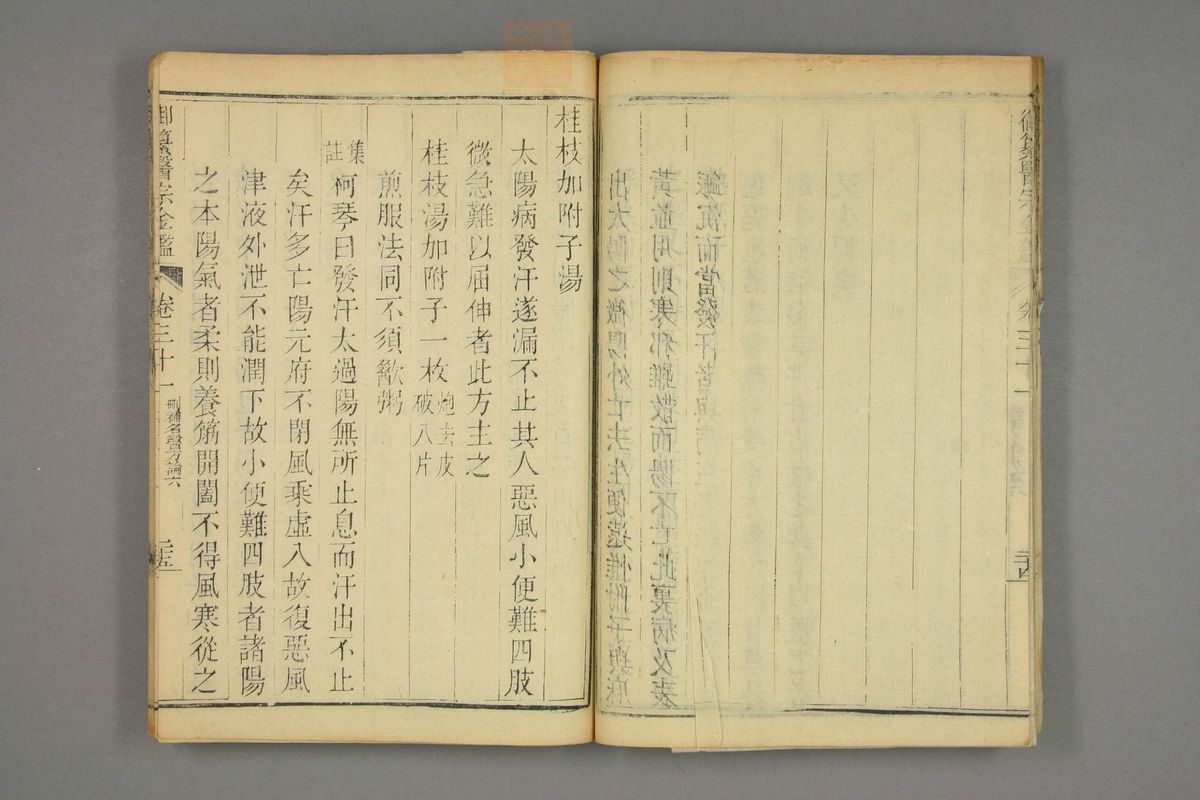 御纂醫宗金鑑 卷三十一
出太陽之微陽外亡去生便遠惟附子與麻
黃並用則寒邪雖散而陽不亡此裏病及表
脈沉而當發汗者
桂枝加附子湯
太陽病發汗遂漏不止其人惡風小便難四肢
微急難以屈伸者此方主之
桂枝湯加附子一枚炮去皮破八片
煎服法同不須歠粥
集註柯琴曰發汗太過陽無所止息而汗出不止
矣汗多亡陽元府不閉風乘虛入故復惡風
津液外泄不能潤下故小便難四肢者諸陽
之本陽氣者柔則養筋開闔不得風寒從之
御纂醫宗金鑑 卷三十一 刪補名醫方論六 二十五